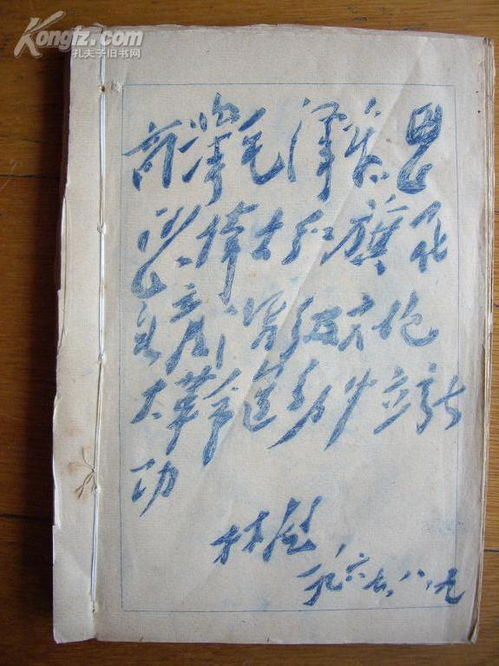 Kongfz.com
孔夫子旧书网
高举毛泽东思
想伟大红旗在
无产阶级文化
大革命运动中立新
功
林彪
一九六七.八.九